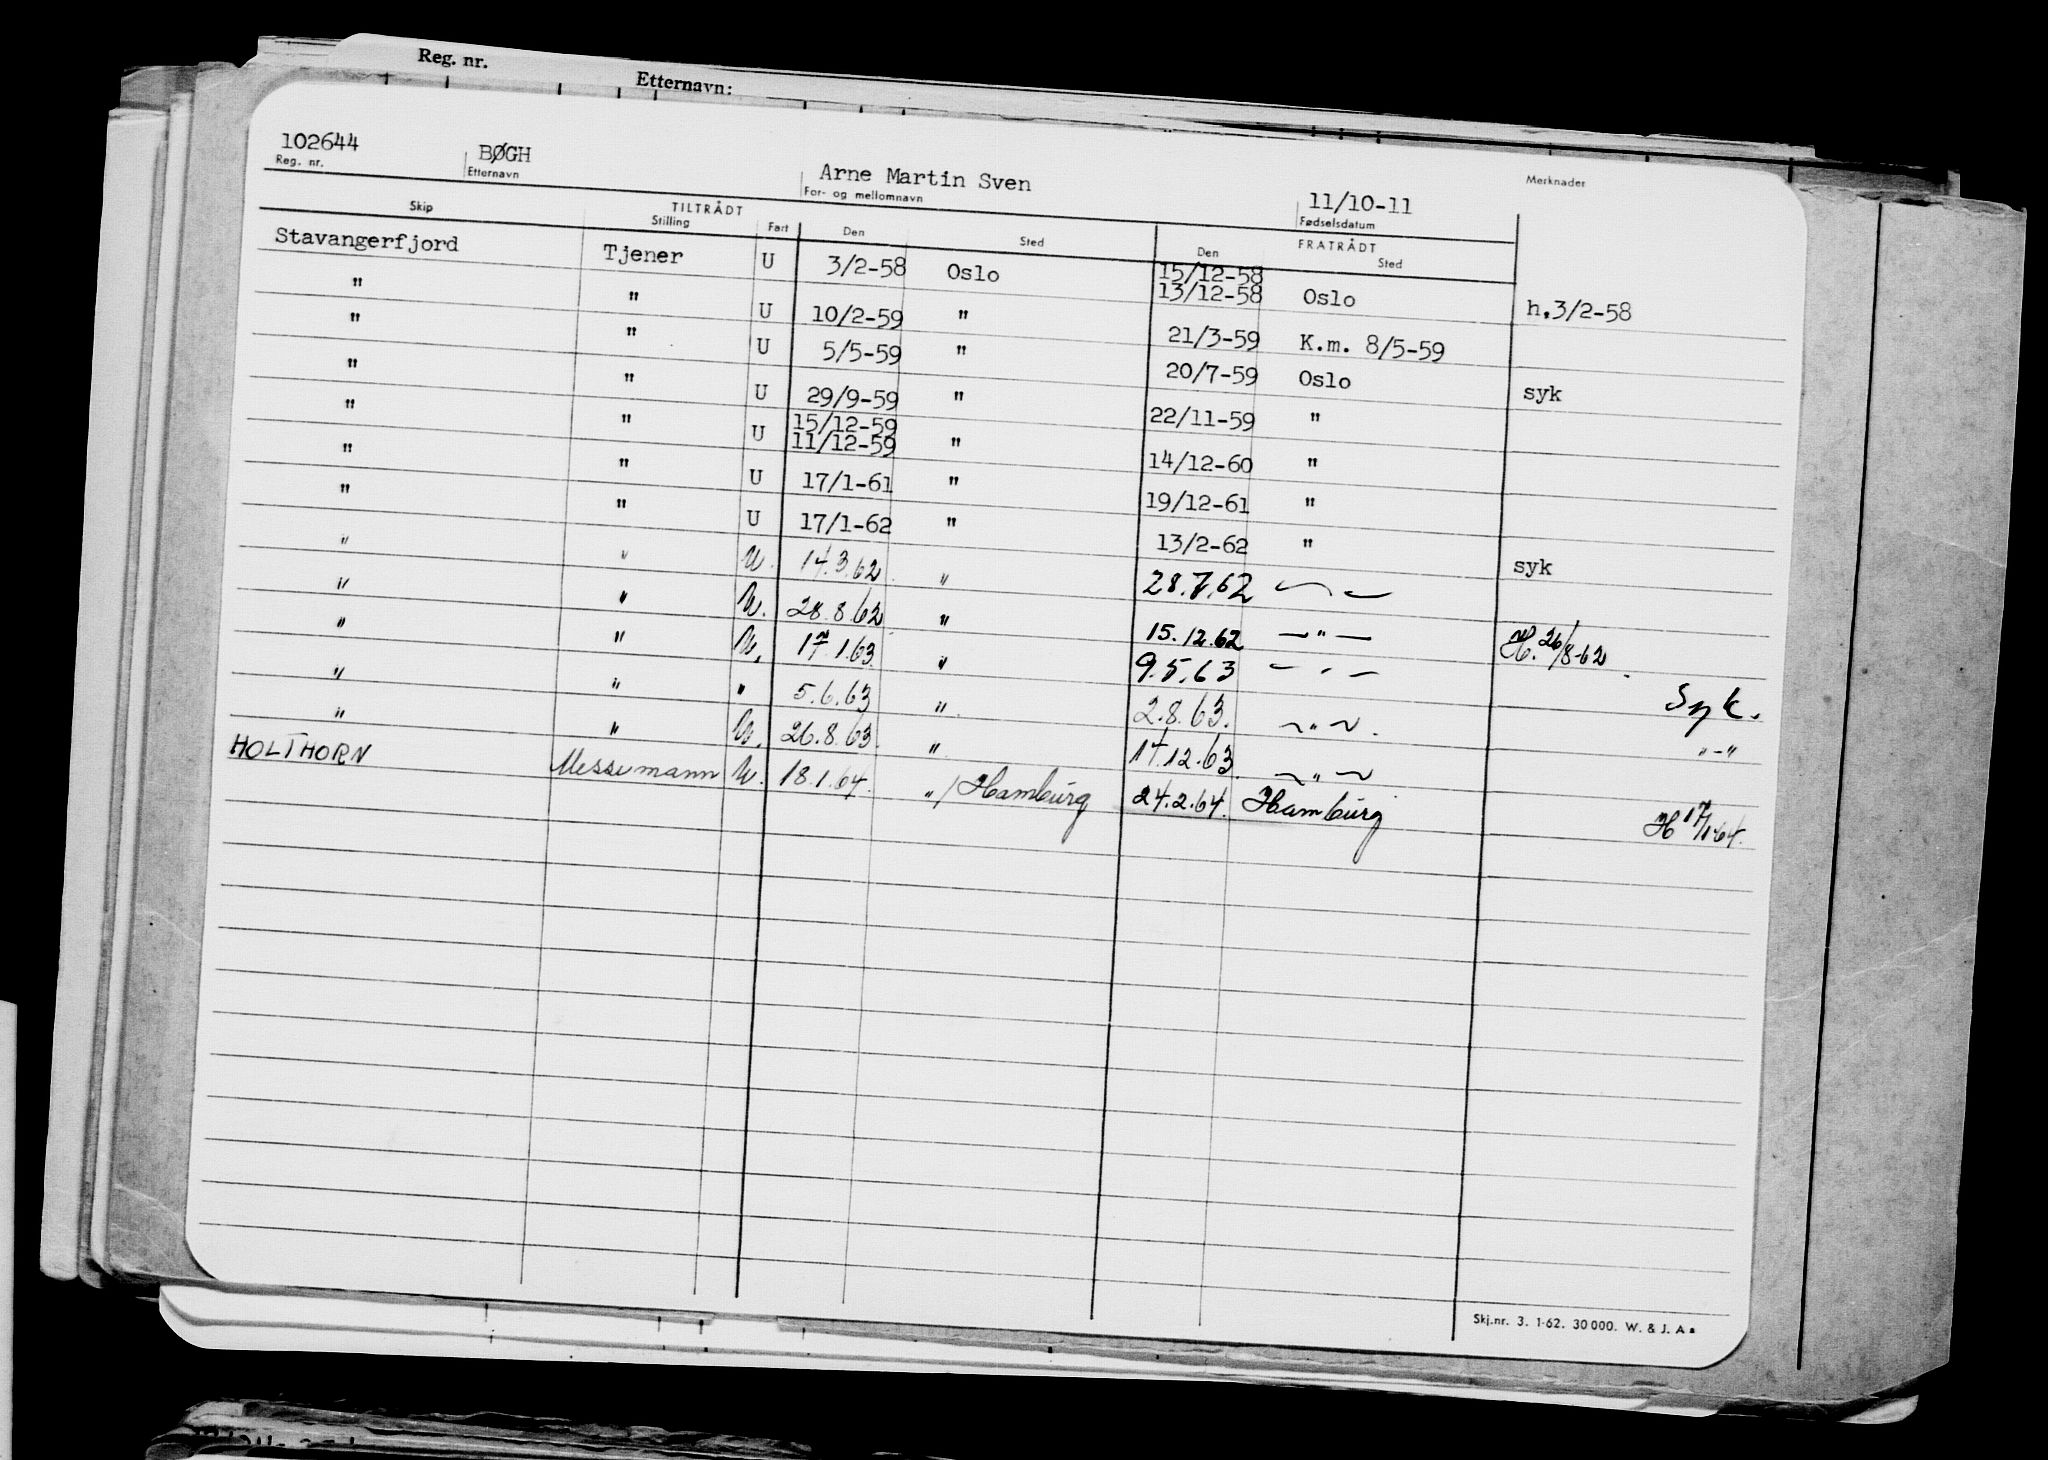 Reg. nr.
Etternavn:
102644 BØGH Arne Martin Sven 11/10-11 Merknader
Reg. nr. Etternavn For- og mellomnavn Fødselsdatum
TILTRÅDT FRATRÅDT
Skip Stilling Fart Den Sted Den Sted
Stavangerfjord Tjener U 3/2-58 Oslo 15/12-58
13/12-58 Oslo h.3/2-58
" " U 10/2-59 " 21/3-59 K.m. 8/5-59
" " U 5/5-59 " 20/7-59 Oslo syk
" " U 29/9-59 " 22/11-59 "
" " U 15/12-59
11/12-59 " 14/12-60 "
" " U 17/1-61 " 19/12-61 "
" " U 17/1-62 " 13/2-62 " syk
" " U. 14.3.62 " 28.7.62 —"—
" " U. 28.8.62 " 15.12.62 —"— H. 26/8-62
" " U. 17.1.63 " 9.5.63 — " — Syk.
" " " 5.6.63 " 2.8.63. —"— . "-"
" " U. 26.8.63. " 14.12.63. —"—
HOLTHORN Messemann U. 18.1.64. "/Hamburg 24.2.64. Hamburg H 17/1-64.
Skj.nr. 3. 1-62. 30 000. W. & J. A s